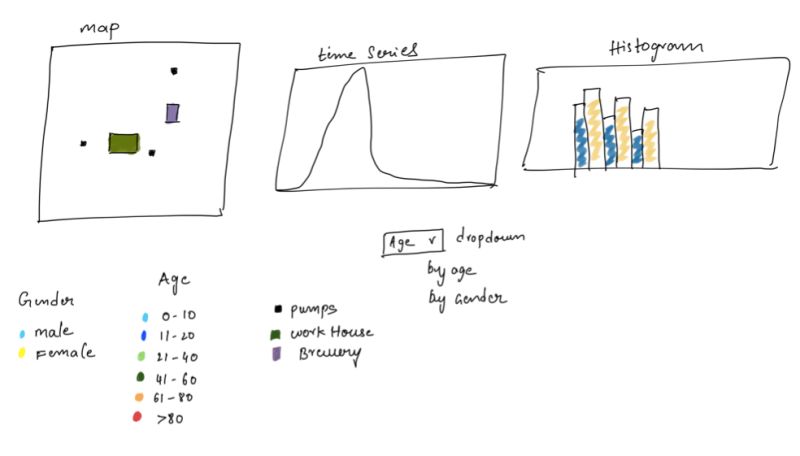 map
time series
Histogram
Age v dropdown
by age
by Gender
Gender
male
Female
Age
0-10
11-20
21-40
41-60
61-80
>80
pumps
work House
Brewery